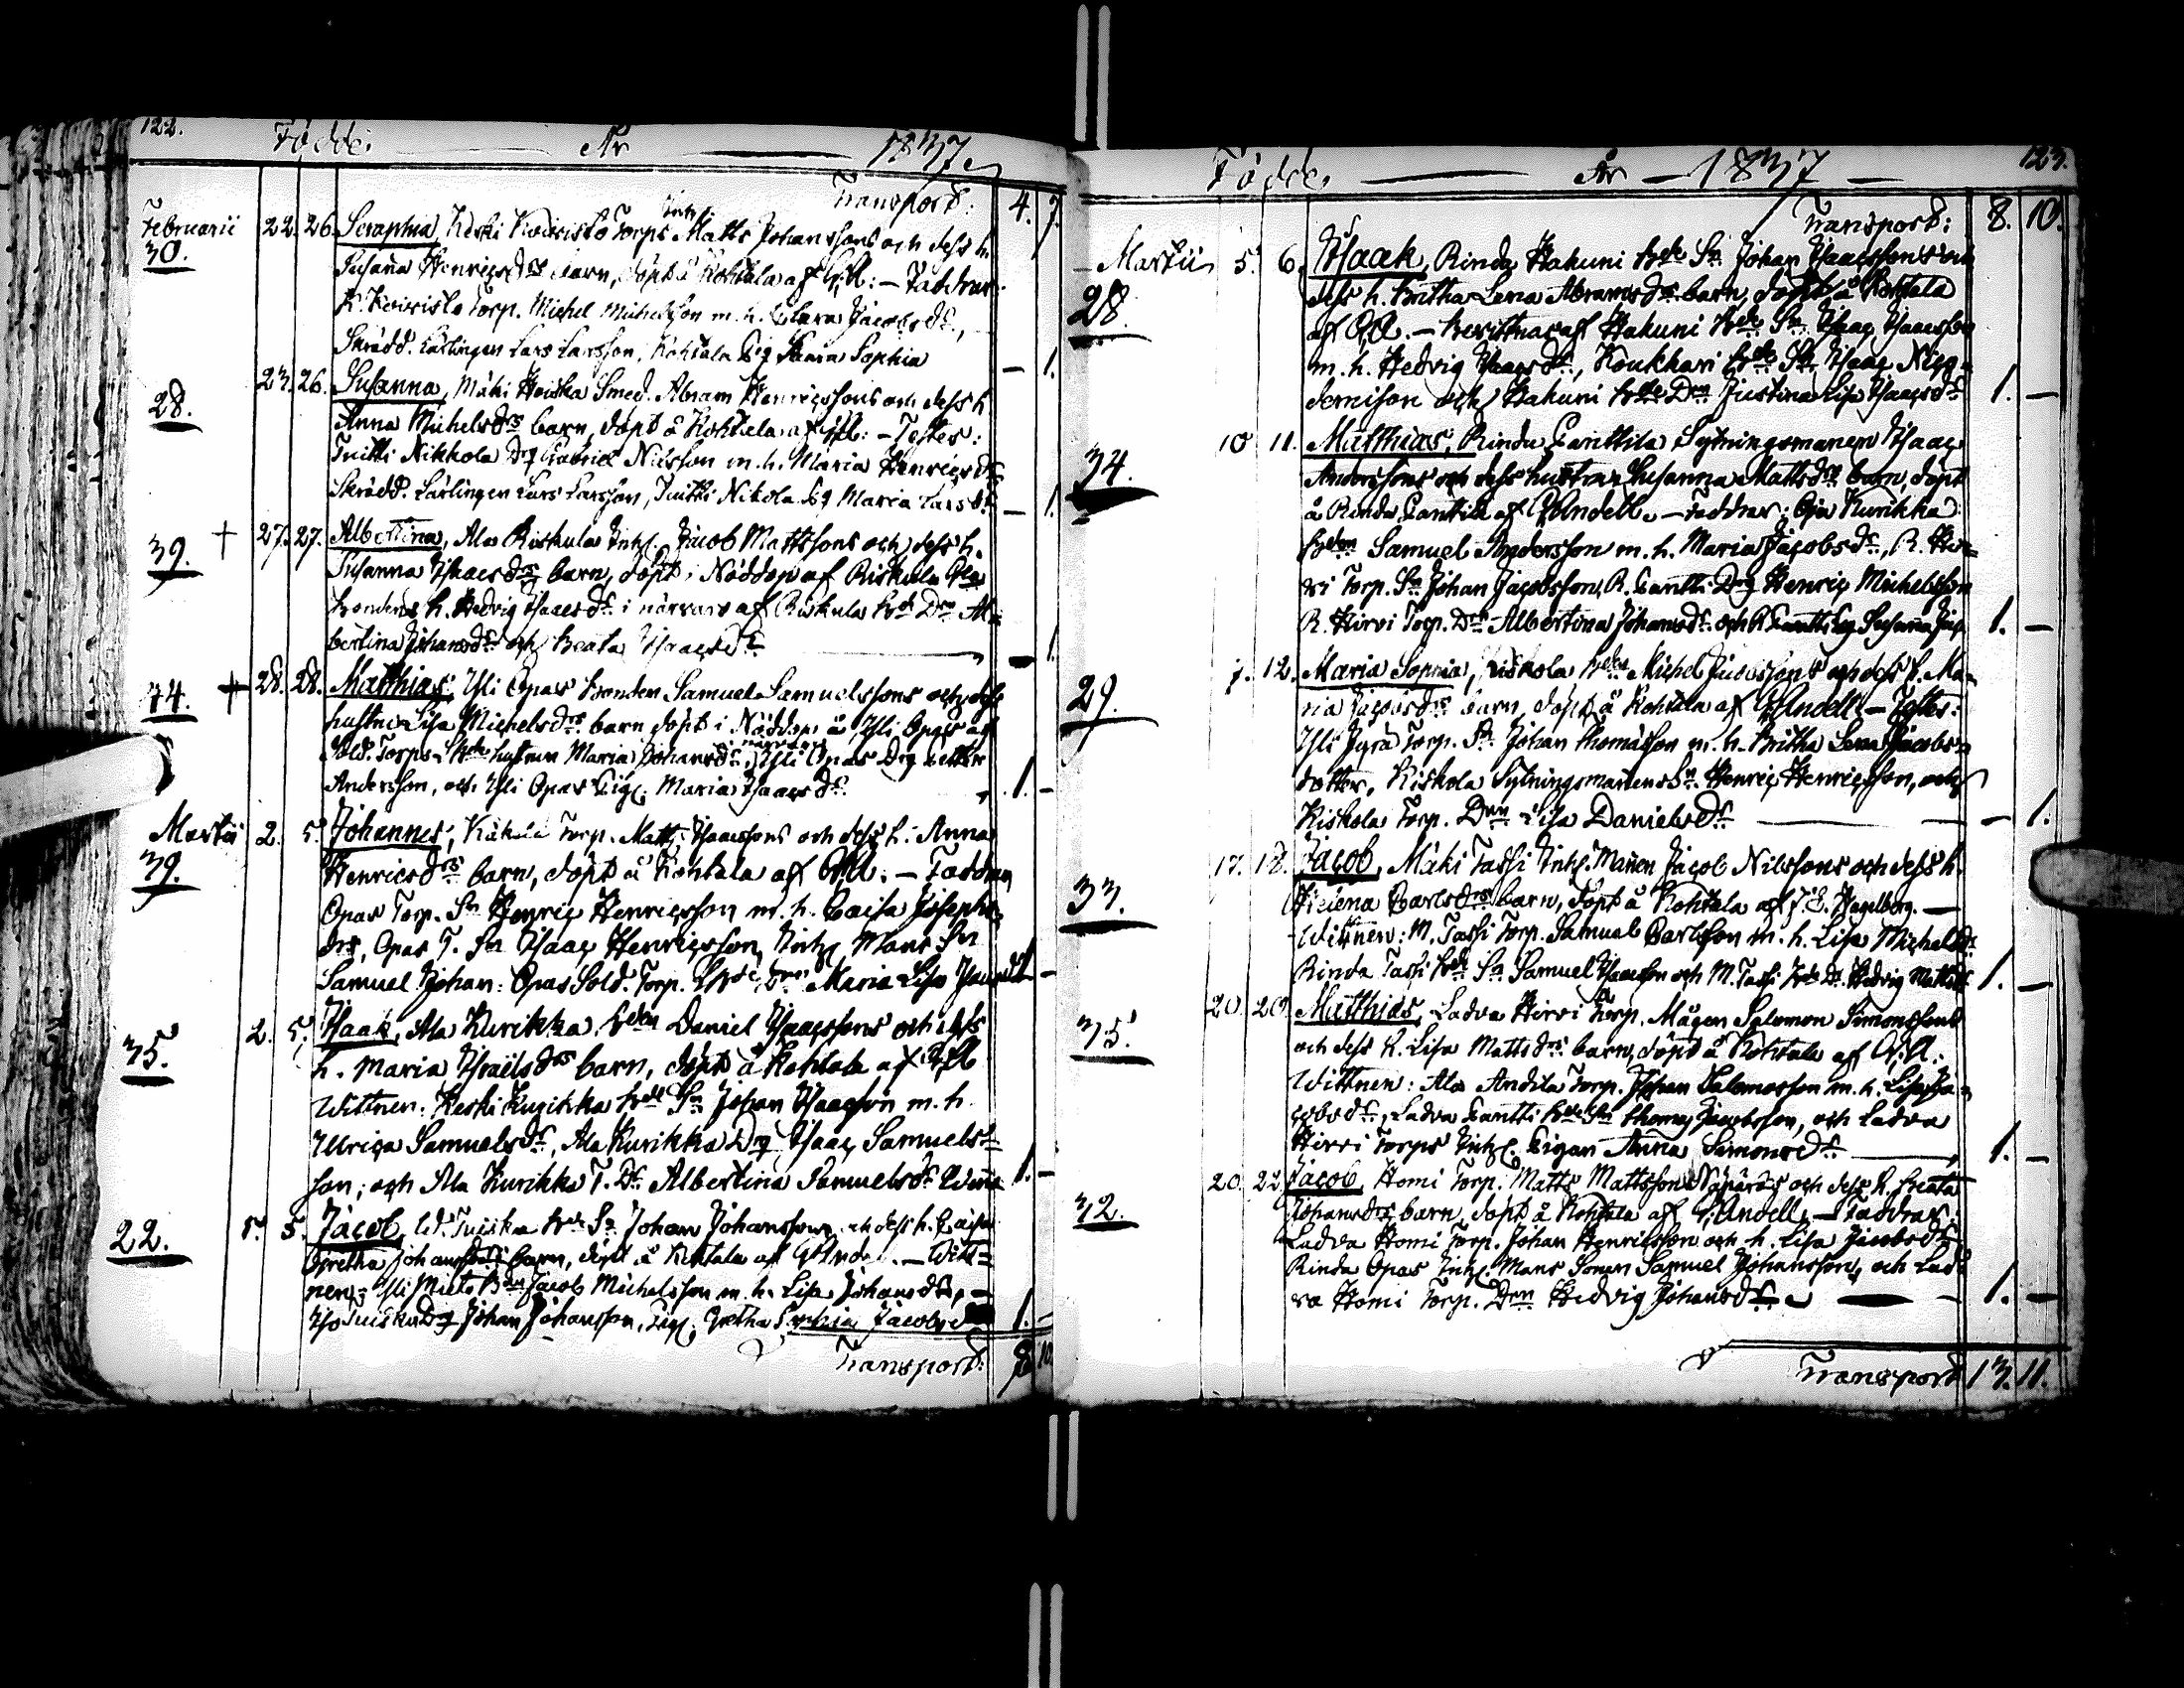 122.
Födde. År 1837.
Transport: 4. 7.
Februarii 22. 26. Seraphia, Keski Koivisto Torps Inh. Matts Johanssons och dess h.
30. Susanna Henricsdrs barn, döpt å Kohtala af G:A: – Faddrar:
K. Koivisto Torp. Michel Michelsson m. h. Clara Jacobsdr,
Skrädd. Lärlingen Lars Larsson, Kohtala Pig Sophia – 1.
23. 26. Susanna, Mäki Smed. Abram Henricssons och dess h.
28. Anna Michelsdrs barn, döpt å Kohtala af G:A: – Testes:
Tuitti Nikkola Drg Gabriel Nilsson m. h. Maria Henricsdr
Skrädd. Lärlingen Lars Larsson, Tuitti Nikola Pig Maria Larsdr – 1.
+ 27. 27. Albertina, Ala Riskula Inh. Jacob Mattssons och dess h.
39. Susanna Isaacsdrs barn, döpt i Nöddop af Riskula
bondens h. Hedvig Isaacsdr i närvaro af Riskula Bde Drn Al-
bertina Johansdr och Beata Isaacsdr – 1.
44. + 28. 28. Matthias, Yli Opas bonden Samuel Samuelssons och dess
hustru Lisa Michelsdrs barn döpt i Nöddop å Yli Opas af
Sold. Torps hustrun Maria Johansdr, närvaro Yli Opas Drg
Andersson, och Yli Opas Pig. Maria Isaacsdr. 1. –
Martii 2. 5. Johannes, Torp. Matts Isaacssons och dess h. Anna
39. Henricsdrs barn, döpt å Kohtala af G:A: – Faddrar
Opas Torp. Sn Henric Henricsson m. h. Caisa Josephs-
drs, Opas T. Sn Isaac Henricsson, Inh. Mans Sn
Samuel Johan: Opas Sold. Torp. Maria Lisa 1. –
2. 5. Isaak, Ala Kurikka bden Daniel Isaacssons och dess
35. h. Maria Israelsdrs barn, döpt å Kohtala af G:A
Wittnen: Keski Kurikka Bde Sn Johan Isaacsson m. h.
Ulrica Samuelsdr, Ala Kurikka Drg Isaac Samuels-
son, och Ala Kurikka T. Dr Albertina Samuelsdr 1. –
5. 5. Jacob, Tuiska Bde Sn Johan Johanssons och dess h. Caisa
22. Gretha Johansdrs barn, döpt å Kohtala af G:Andell. – Witt-
nen: Yli Mieto Bden Jacob Michelsson m. h. Lisa Johansdr, –
Iso Tuisku Drg Johan Johansson, Pig. Gretha Sophia Jacobsd 1. –
Transport: 8. 10.
123.
Födde. År – 1837 –
Transport: 8. 10.
Martii 5. 6. Isaak, Rinda Hakuni Bde Sn Johan Isaacssons och
28. dess h. Britha Lena Abramsdrs barn, döpt å Kohtala
af G:A. – Bevittnas af Hakuni Bde Sn Isaac Isaacsson
m. h. Hedvig Isaacsdr, Koukkari Bde Sn Isaac Nico-
demison och Hakuni Bde Drn Justina Lisa Isaacsdr 1. –
10. 11. Matthias, Rinda Panttila Sytningsmannen Isaac
34. Anderssons och dess hustrus Susanna Mattsdrs barn, döpt
å Rinda Panttila af G:Andell. – Faddrar: Oja Kurikka
bden Samuel Andersson m. h. Maria Jacobsdr, R. Hir-
vi Torp. Sn Johan Jacobsson, R. Pantti Drg Henric Michelsson
R. Hirvi Torp. Dr Albertina Johansdr och R. Pantti Pig Susanna 1. –
7. 12. Maria Sophia, Kiskola bden Michel Jacobssons och dess h. Ma-
29. ria Jacobsdrs barn, döpt å Kohtala af G:Andell – Testes:
Yli Jyrä Torp. Sn Johan Thomasson m. h. Britha Lena Jacobs-
dotter, Kiskola Sytningsmanens Sn Henric Henricsson, och
Kiskola Torp. Drn Lisa Danielsdr – 1.
17. 18. Jacob, Mäki Tassi Inh. Mannen Jacob Nilssons och dess h.
33. Helena Carlsdrs barn, döpt å Kohtala af J. E. Hagelberg. –
Wittnen: M. Tassi Torp. Samuel Carlsson m. h. Lisa Michelsdr
Rinda Tassi Bde Sn Samuel Isaacsson och M. Tassi Bde Dr Hedvig Mattsdr 1. –
20. 20. Matthias, Ladva Hirvi Torp. Mågen Salomon Simonssons
35. och dess h. Lisa Mattsdrs barn, döpt å Kohtala af G:A.:
Wittnen: Ala Andila Torp. Johan Salomosson m. h. Lisa Ja-
cobsdr, Ladva Pantti Bde Sn Thomas Jacobsson, och Ladva
Hirvi Torps Inh. Pigan Anna Simonsdr 1. –
20. 22. Jacob, Homi Torp. Matts Mattssons och dess h. Beata
32. Johansdrs barn, döpt å Kohtala af G:Andell. – Faddrar:
Ladva Homi Torp. Johan Henricsson och h. Lisa Jacobsdr
Rinda Opas Inh. Mans Sonen Samuel Johansson, och Lad-
va Homi Torp. Drn Hedvig Johansdr 1. –
Transport 13. 11.